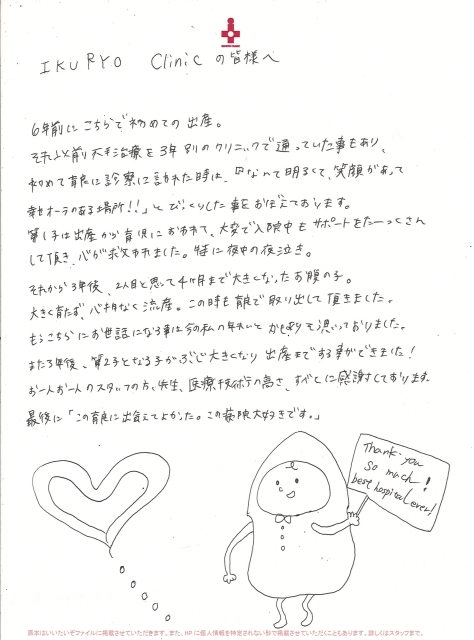 IKURYO Clinic の皆様へ
6年前にこちらで初めての出産。
それ以前 不妊治療を3年 別のクリニックで通っていた事もあり、
初めて育良に診察に訪れた時は、「なんて明るくて、笑顔があって
幸せオーラのある場所!!」とびっくりした事をおぼえております。
第1子は出産から育児におわれて、大変で入院中もサポートをたーっくさん
して頂き、心が救われました。特に夜中の夜泣き。
それから3年後、2人目と思って4ヶ月まで大きくなったお腹の子。
大きく育たず、心拍なく流産。この時も育良で取り出して頂きました。
もうこちらにお世話になる事は今の私の年れいと かも 思っておりました。
また3年後、第2子となる子がぶじ大きくなり 出産までする事ができました!
お一人お一人のスタッフの方、先生、医療技術の高さ、すべてに感謝しております。
最後に「この育良に出会えてよかった。この病院大好きです。」
Thank you
so much!
best hospital ever!
原本はいいたいぞファイルに掲載させていただきます。また、HPに個人情報を特定されない形で掲載させていただくこともあります。詳しくはスタッフまで。